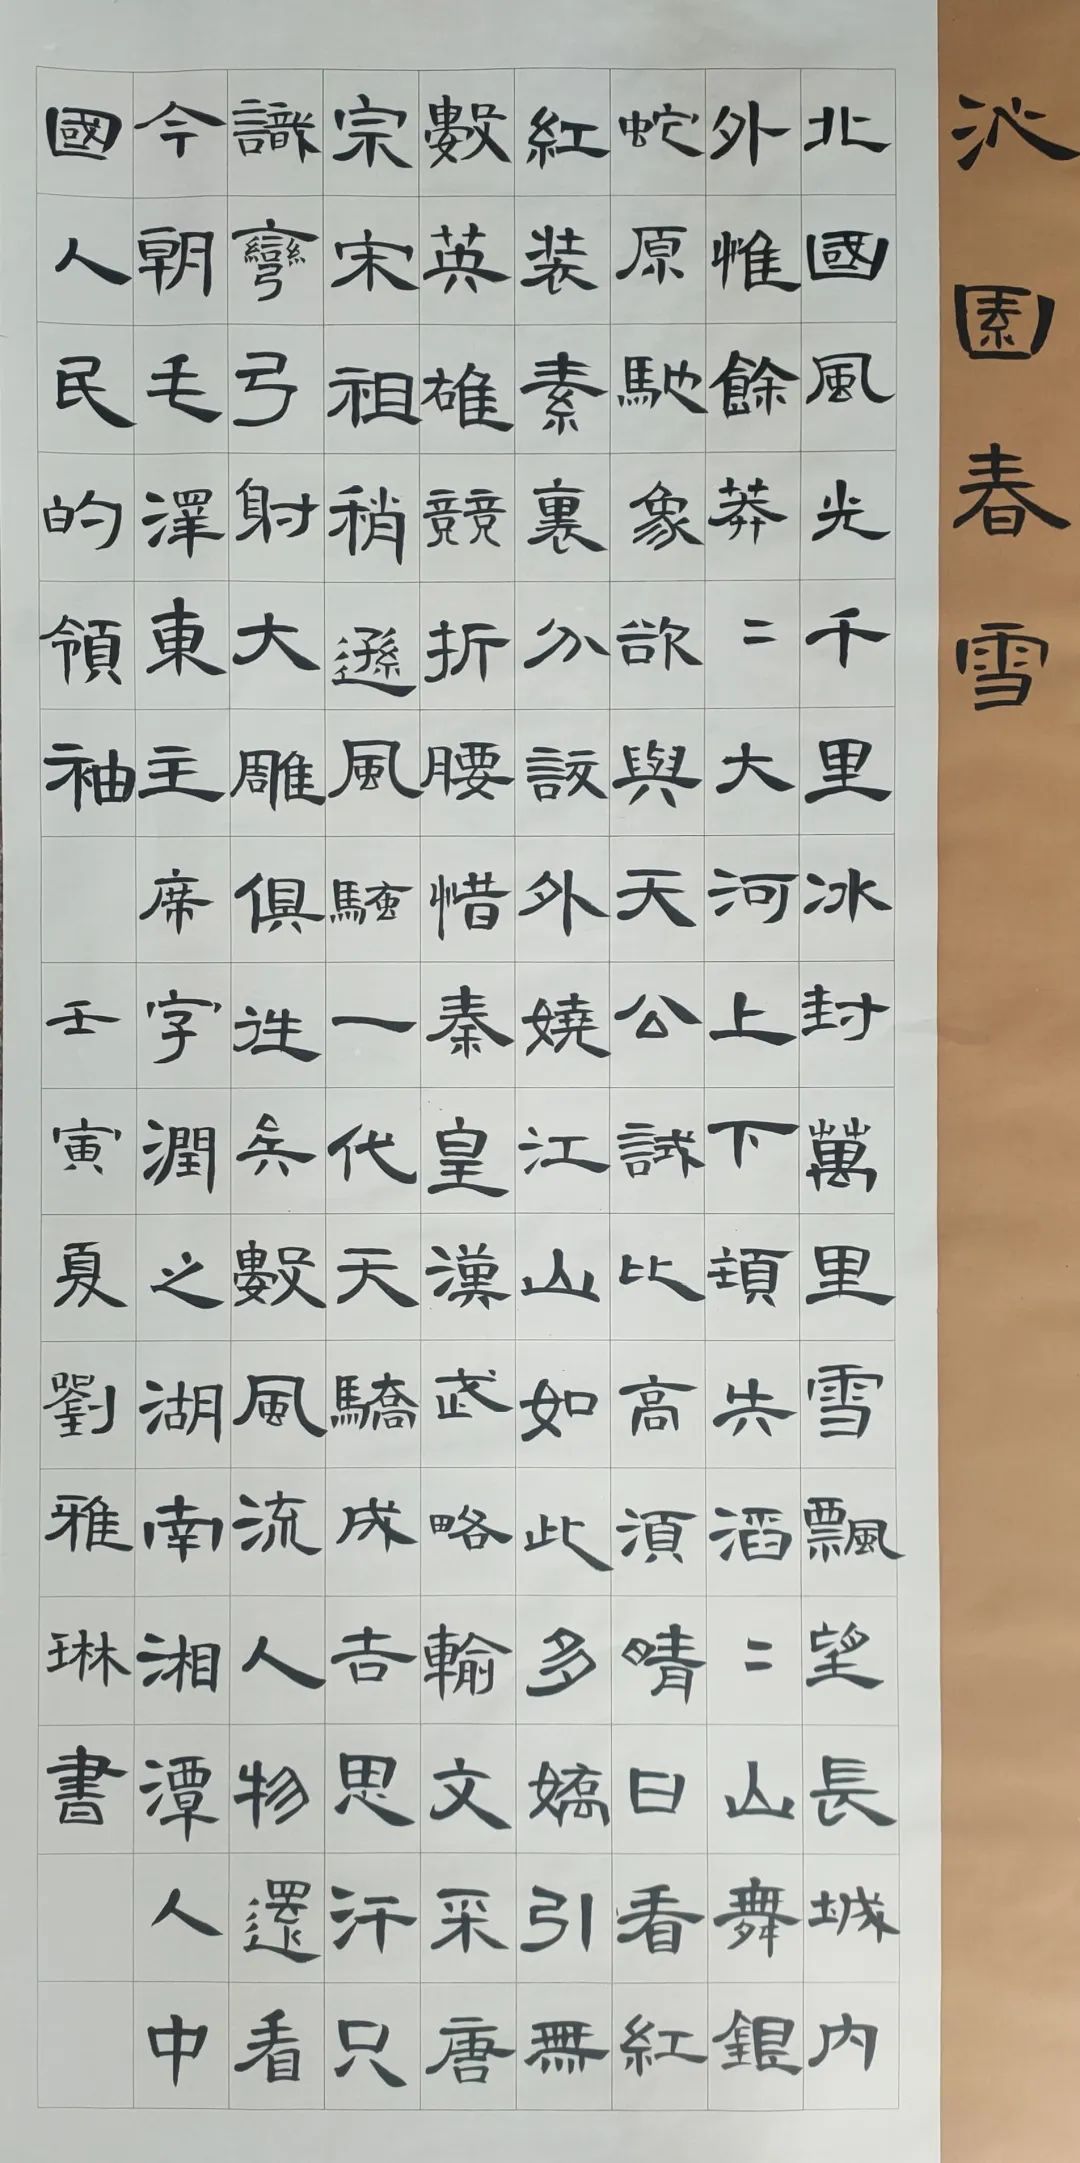 沁園春雪
北國風光千里冰封萬里雪飄望長城内
外惟餘莽〻大河上下頓失滔〻山舞銀
蛇原馳象欲與天公試比高須晴日看紅
紅装素裏分設外嬈江山如此多嬌引無
數英雄競折腰惜秦皇漢武略輸文采唐
宗宋祖稍遜風騷一代天驕成吉思汗只
識彎弓射大雕俱往矣數風流人物還看
今朝毛澤東主席字潤之湖南湘潭人中
國人民的領袖
壬寅夏劉雅琳書